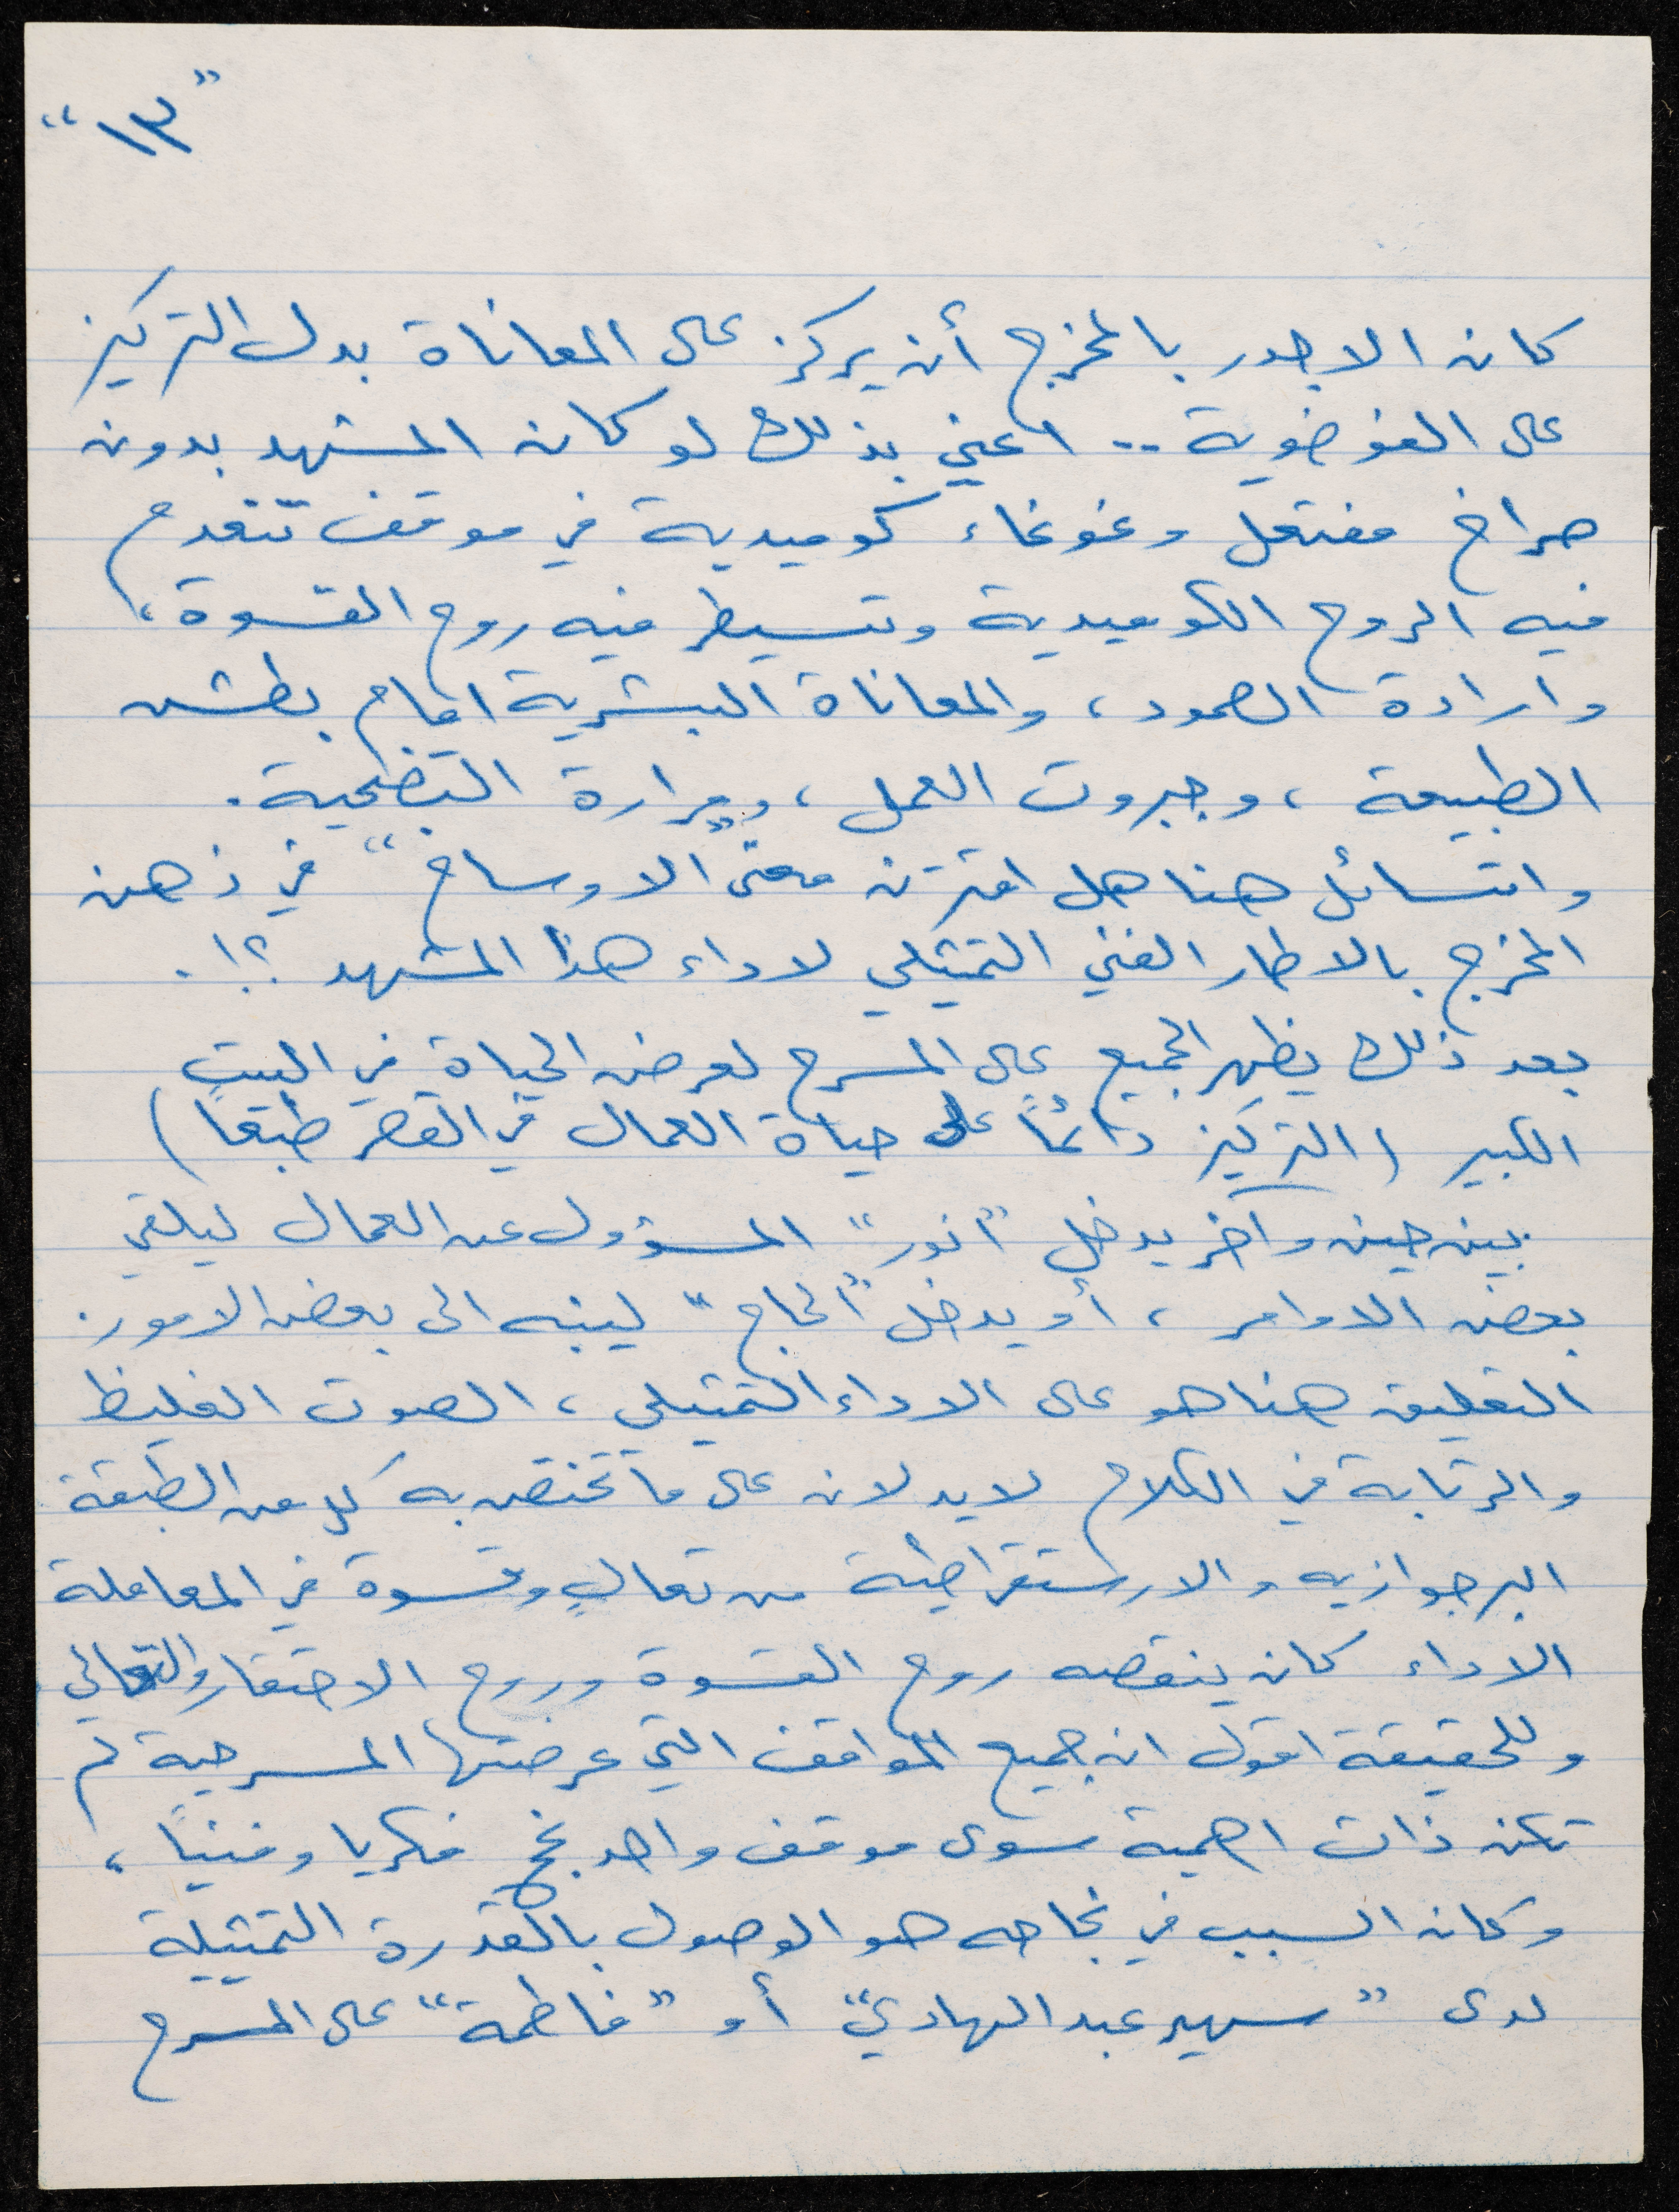 "١٣"
كان الاجدر بالمخرج أن يركز على المعاناة بدل التركيز
على الفوضوية .. اعني بذلك لو كان المشهد بدون
صراخ مفتعل وغوغاء كوميدية في موقف تنعدم
فيه الروح الكوميدية وتسيطر فيه روح القسوة ،
وارادة الصمود ، والمعاناة البشرية امام بطش
الطبيعة ، وجبروت العمل ، ومرارة التضحية .
واتسائل هنا هل اقترن معنى "الاوساخ" في ذهن
المخرج بالاطار الفني التمثيلي لاداء هذا المشهد ؟! .
بعد ذلك يظهر الجميع على المسرح لعرض الحياة في البيت
الكبير ( التركيز دائماً على حياة العمال في القصر طبعاً )
بين حين وآخر يدخل "انور" المسؤول عن العمال ليلقي
بعض الاوامر ، أو يدخل "الحاج" لينبه الى بعض الامور .
التعليق هنا هو على الاداء التمثيلي ، الصوت الغليظ
والرتابة في الكلام لا يدلان على ما تختص به كل من الطبقة
البرجوازيه والارستقراطية من تعالٍ وقسوة في المعاملة
الاداء كان ينقصه روح القسوة وروح الاحتقار والتعالي
وللحقيقة اقول ان جميع المواقف التي عرضتها المسرحية لم
تكن ذات اهمية سوى موقف واحد نجح فكريا وفنياً ،
وكان السبب في نجاحه هو الوصول بالقدرة التمثيلية
لدى "سهير عبد الهادي" أو "فاطمة" على المسرح